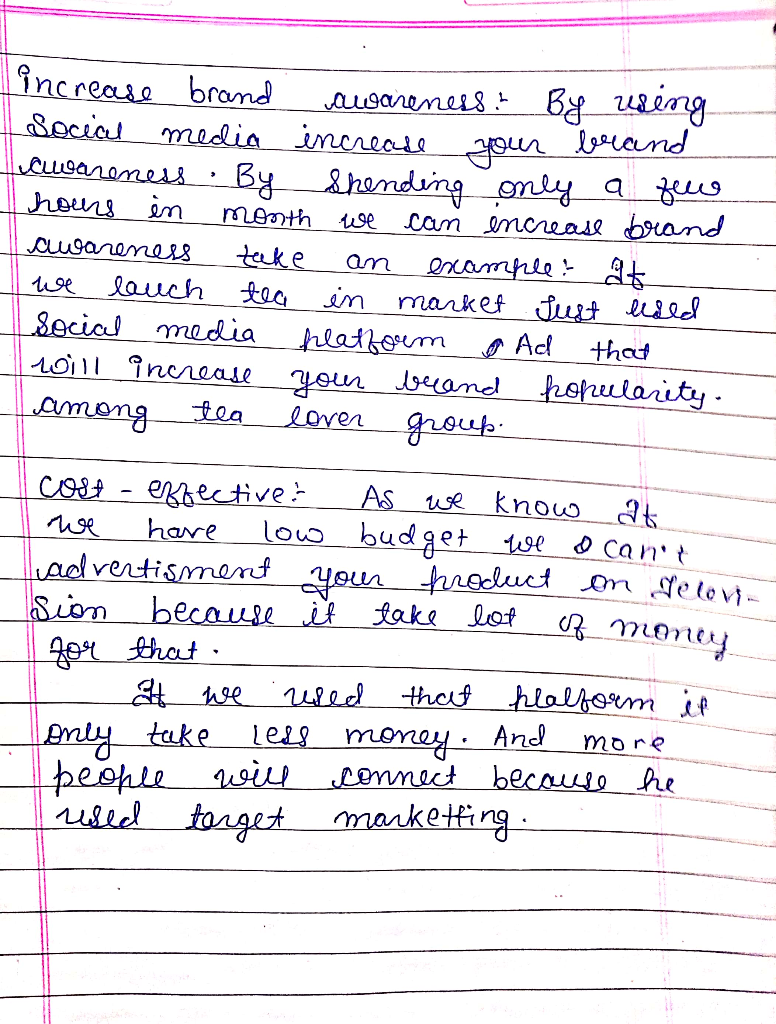 Increase brand awareness :- By using
Social media increase your brand
awareness . By Spending only a few
hours in month we can increase brand
awareness take an example :- If
we lauch tea in market Just used
Social media platform Ad that
will Increase your brand popularity.
among tea lover group.
Cost - effective :- As we know If
we have low budget we can't
advertisment your product on Televi-
Sion because it take lot of money
for that .
If we used that platform it
only take less money . And more
people will connect because he
used target marketting .